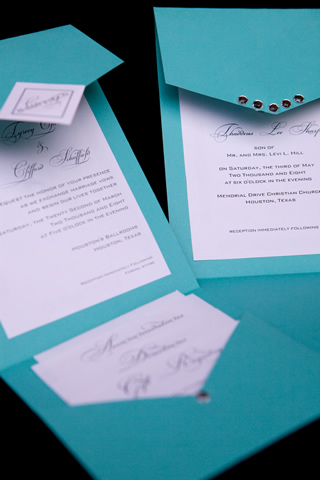 &
Clifford
REQUEST THE HONOR OF YOUR PRESENCE
AS WE EXCHANGE MARRIAGE VOWS
AND BEGIN OUR LIVES TOGETHER
SATURDAY, THE TWENTY SECOND OF MARCH
TWO THOUSAND AND EIGHT
AT FIVE O'CLOCK IN THE EVENING
HOUSTON'S BALLROOMS
HOUSTON, TEXAS
RECEPTION IMMEDIATELY FOLLOWING
Thaddeus Lee
SON OF
MR. AND MRS. LEVI L. HILL
ON SATURDAY, THE THIRD OF MAY
TWO THOUSAND AND EIGHT
AT SIX O'CLOCK IN THE EVENING
MEMORIAL DRIVE CHRISTIAN CHURCH
HOUSTON, TEXAS
RECEPTION IMMEDIATELY FOLLOWING
Accommodations
Directions
Gift Registry